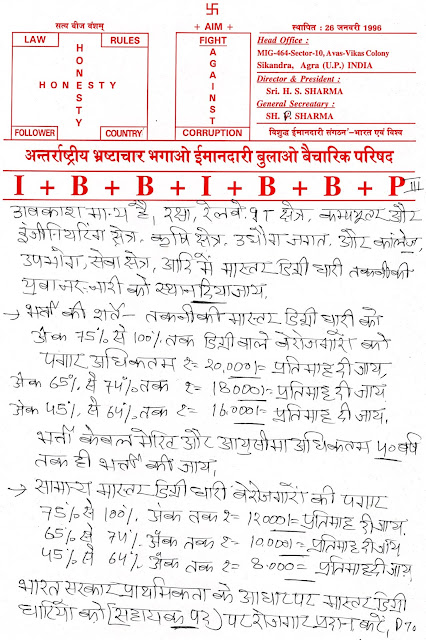 सत्य बीज वंशम्
LAW RULES
HONESTY
HONESTY
FOLLOWER COUNTRY
+ AIM +
FIGHT
AGAINST
CORRUPTION
स्थापित : 26 जनवरी 1996
Head Office :
MIG-464-Sector-10, Avas-Vikas Colony
Sikandra, Agra (U.P.) INDIA
Director & President :
Sri. H. S. SHARMA
General Secreatary :
SH. P. SHARMA
विशुद्ध ईमानदारी संगठन'-भारत एवं विश्व
अन्तर्राष्ट्रीय भ्रष्टाचार भगाओ ईमानदारी बुलाओ बैचारिक परिषद
I + B + B + I + B + B + P III
अवकाश मान्य है, रक्षा, रेलवे, क्षेत्र, कम्प्यूटर और
इंजीनियरिंग क्षेत्र, कृषि क्षेत्र, उद्योग जगत, और कॉलेज,
उपभोग, सेवा क्षेत्र, आदि में मास्टर डिग्री धारी तकनीकी
युवा को स्थान दिया जाय,
→ भर्ती की शर्तें- तकनीकी मास्टर डिग्री धारी को
अंक 75% से 100% तक डिग्री वाले बेरोजगारों को
पगार अधिकतम रु= 20,000/= प्रतिमाह दी जाय,
अंक 65% से 74% तक रु= 18000/= प्रतिमाह दी जाय
अंक 45% से 64% तक रु= 16000/= प्रतिमाह दी जाय,
भर्ती केवल मेरिट और आयुसीमा अधिकतम 40 वर्ष
तक ही भर्ती की जाय,
→ सामान्य मास्टर डिग्री धारी बेरोजगारों की पगार
75% से 100% अंक तक रु= 12000/= प्रतिमाह दी जाय,
65% से 74% अंक तक रु= 10,000/= प्रतिमाह दी जाय
45% से 64% अंक तक रु= 8,000/= प्रतिमाह दी जाय,
भारत सरकार प्राथमिकता के आधार पर मास्टर डिग्री
धारियों को (सहायक पद) पर रोजगार प्रदान करें,